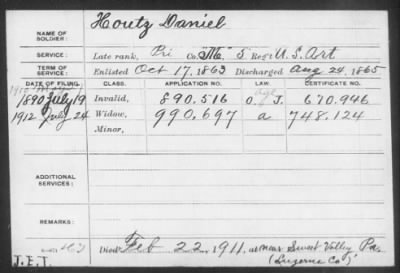 NAME OF SOLDIER: Houtz Daniel
SERVICE: Late rank, Pri Co. "M" 5 Reg't U.S. Art
TERM OF SERVICE: Enlisted Oct 17, 1863 Discharged Aug 24, 1865
DATE OF FILING. CLASS. APPLICATION NO. CERTIFICATE NO.
1890 July 19 Invalid, 890.516 Age O. J. 670.946
1912 July 24 Widow, 990.697 a 748.124
Minor,
ADDITIONAL SERVICES:
REMARKS:
Died Feb 22, 1911, at near Sweet Valley Pa.
(Luzerne Co)
J.E.T.